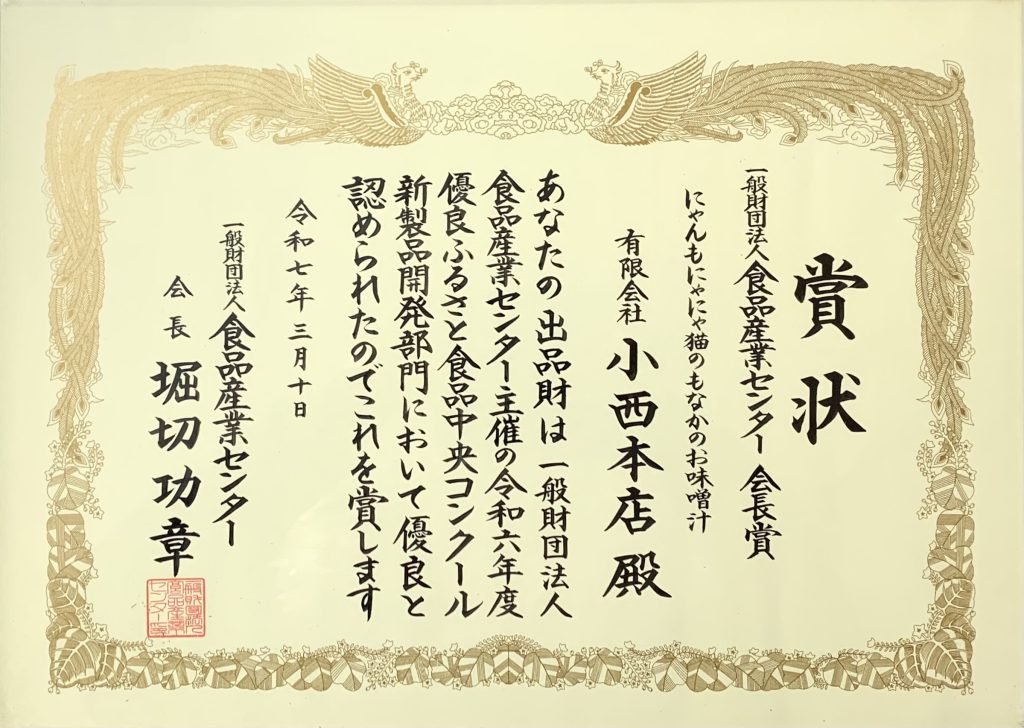 賞状
一般財団法人食品産業センター 会長賞
にゃんもにゃにゃ猫のもなかのお味噌汁
有限会社 小西本店殿
あなたの出品財は一般財団法人
食品産業センター主催の令和六年度
優良ふるさと食品中央コンクール
新製品開発部門において優良と
認められたのでこれを賞します
令和七年三月十日
一般財団法人食品産業センター
会長 堀切功章